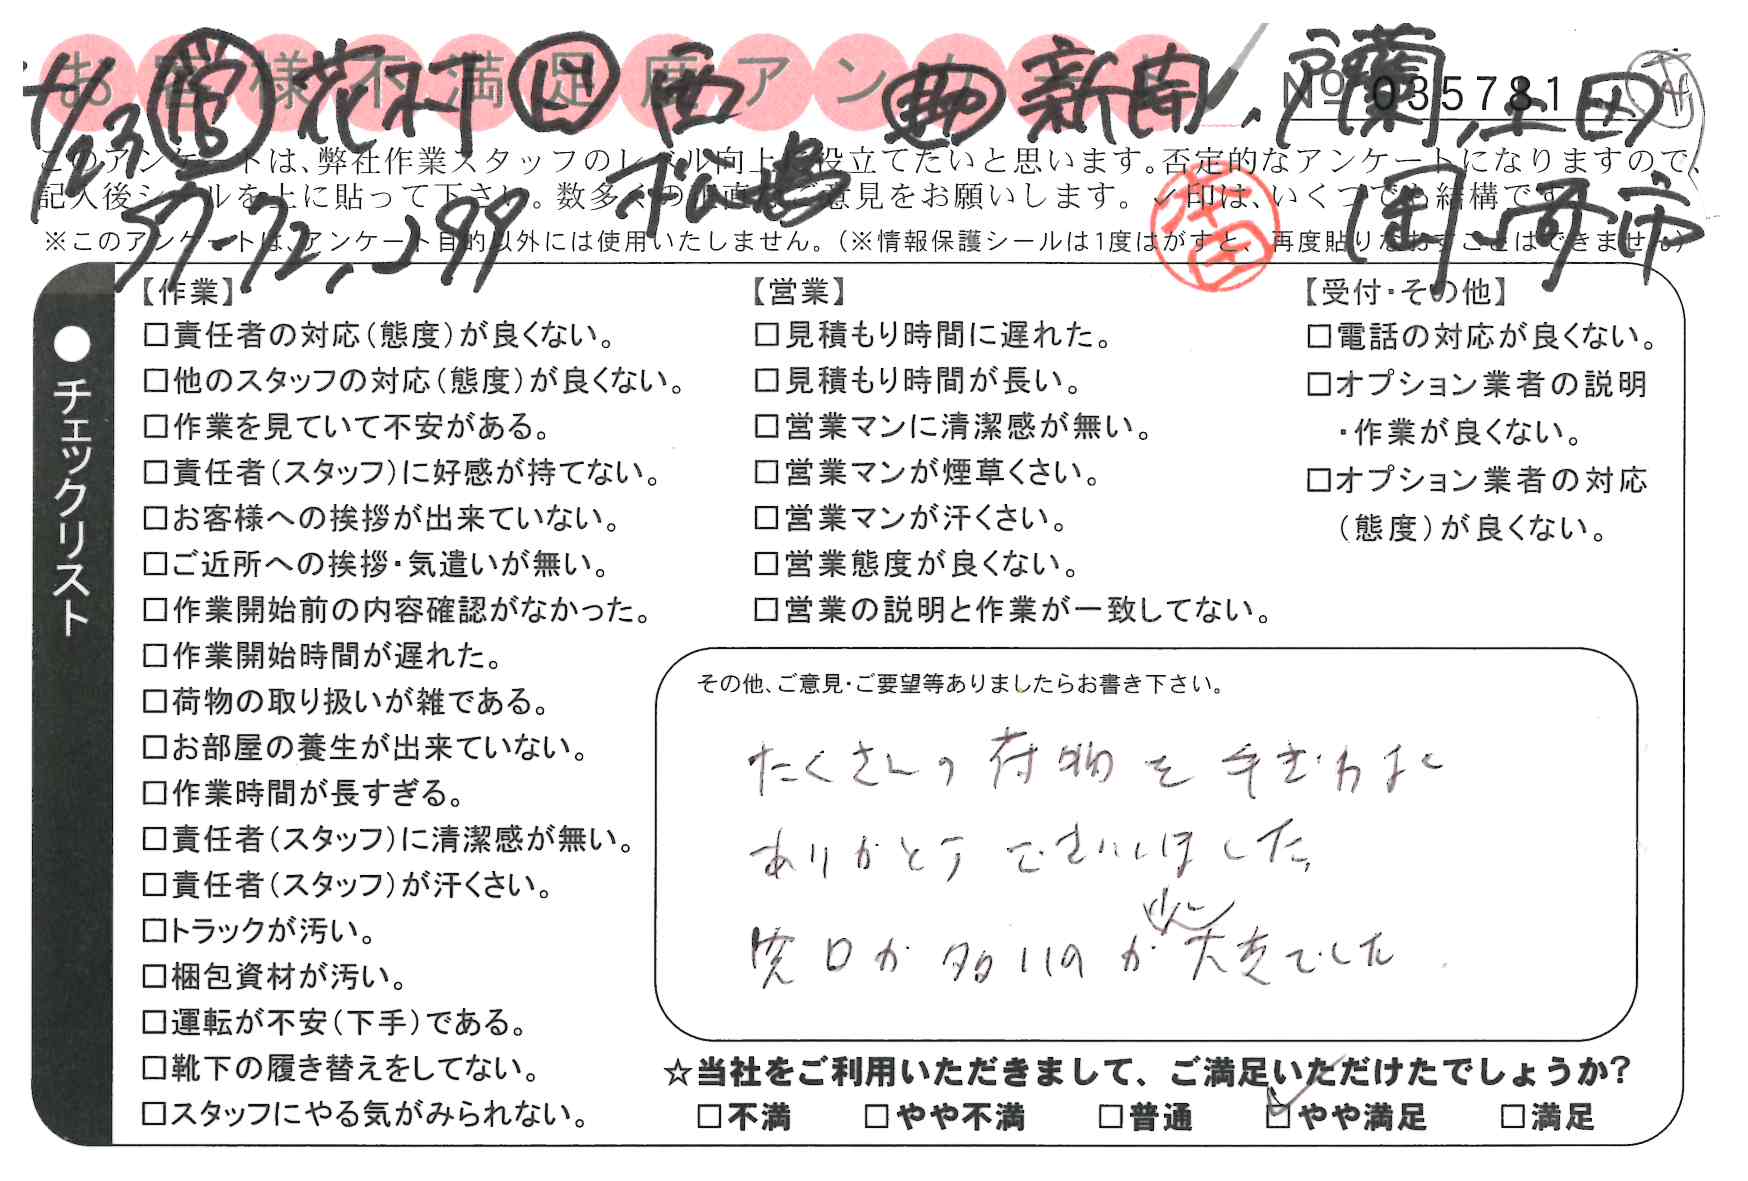 お客様不満足度アンケート
№ 035781
4/23 営 花村 西 松嶋 新南、戸蘭、土田
このアンケートは、弊社作業スタッフのレベル向上に役立てたいと思います。否定的なアンケートになりますので、
記入後シールを上に貼って下さい。数多くの正直なご意見をお願いします。✓印は、いくつでも結構です。
57-72,299
※このアンケートは、アンケート目的以外には使用いたしません。(※情報保護シールは1度はがすと、再度貼りなおすことはできません)
●チェックリスト
【作業】
□責任者の対応(態度)が良くない。
□他のスタッフの対応(態度)が良くない。
□作業を見ていて不安がある。
□責任者(スタッフ)に好感が持てない。
□お客様への挨拶が出来ていない。
□ご近所への挨拶・気遣いが無い。
□作業開始前の内容確認がなかった。
□作業開始時間が遅れた。
□荷物の取り扱いが雑である。
□お部屋の養生が出来ていない。
□作業時間が長すぎる。
□責任者(スタッフ)に清潔感が無い。
□責任者(スタッフ)が汗くさい。
□トラックが汚い。
□梱包資材が汚い。
□運転が不安(下手)である。
□靴下の履き替えをしてない。
□スタッフにやる気がみられない。
【営業】
□見積もり時間に遅れた。
□見積もり時間が長い。
□営業マンに清潔感が無い。
□営業マンが煙草くさい。
□営業マンが汗くさい。
□営業態度が良くない。
□営業の説明と作業が一致してない。
【受付・その他】
□電話の対応が良くない。
□オプション業者の説明
・作業が良くない。
□オプション業者の対応
(態度)が良くない。
その他、ご意見・ご要望等ありましたらお書き下さい。
たくさんの荷物を手ぎわよく
ありがとうございました。
窓口が多いのが少し大変でした
☆当社をご利用いただきまして、ご満足いただけたでしょうか?
□不満 □やや不満 □普通 ☑やや満足 □満足